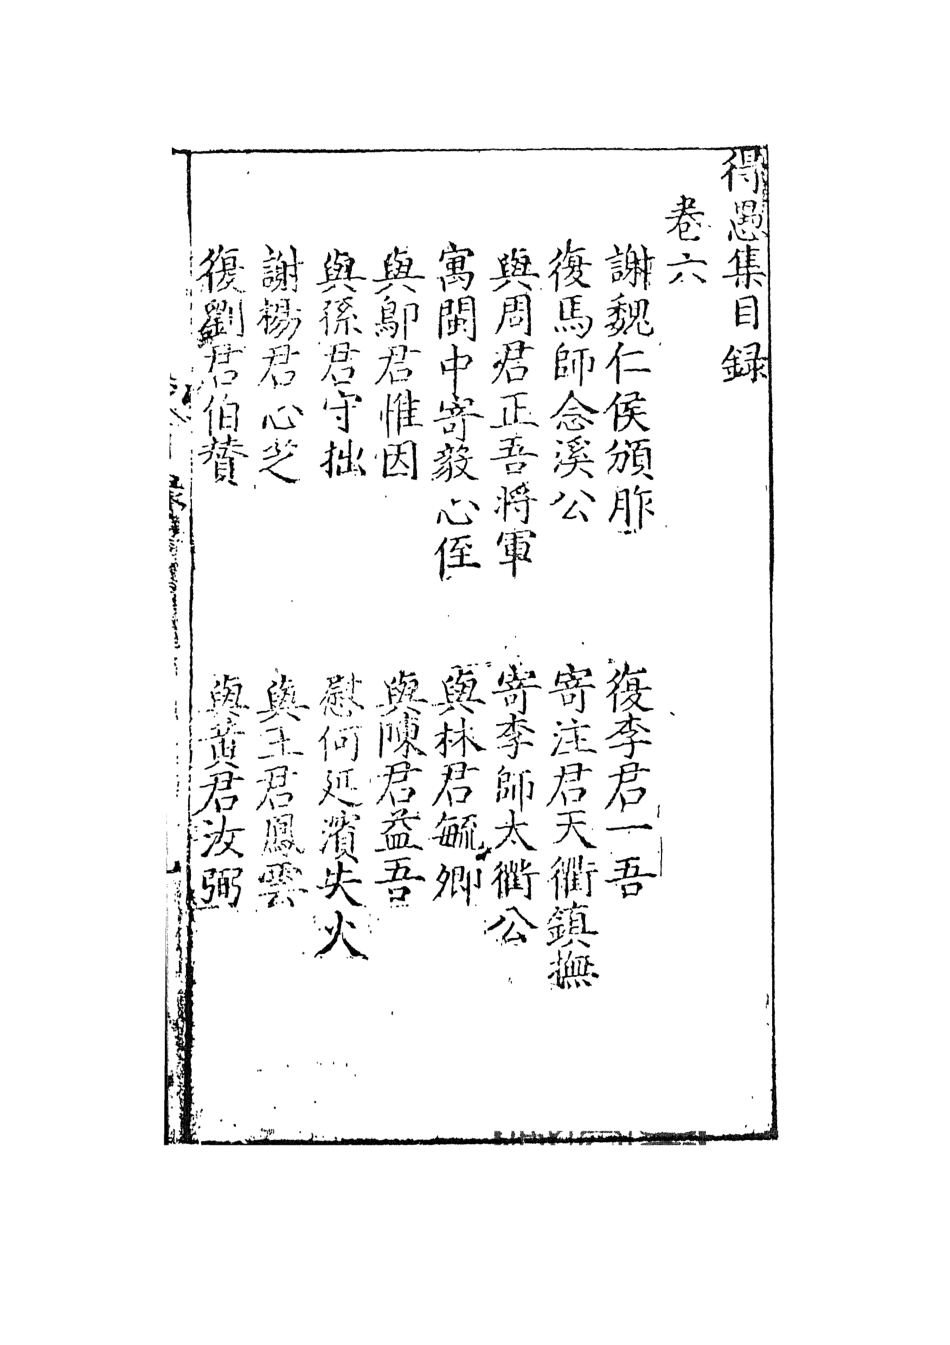 得愚集目録
卷六
謝魏仁侯頒胙
復李君一吾
復馬師念溪公
寄注君天衢鎮撫
與周君正吾將軍
寄李師太衢公
寓閩中寄毅心侄
與林君毓卿
與鄔君惟因
與陳君益吾
與孫君守拙
慰何延濱失火
謝楊君心芝
與王君鳳雲
復劉君伯賛
與黃君汝弼